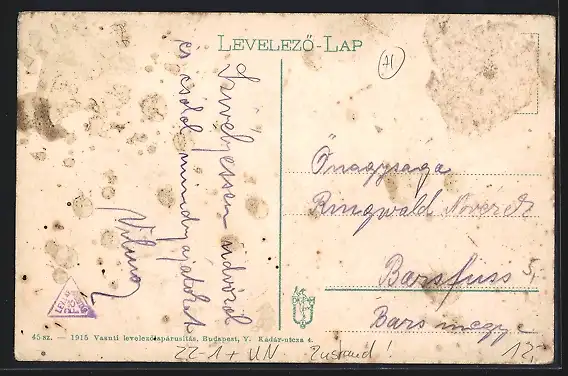 LEVELEZŐ-LAP
A
Szivélyessen üdvözöl
és csókol mindnyájatokat
Vilmos
Őnagysága
Ringwald Nővérek
Barsfüss
Bars megye
45 sz. — 1915 Vasuti levelezőlapárusitás, Budapest, V. Kádár-utcza 4.
ZZ-1+ UN Zustand!
12,
5,